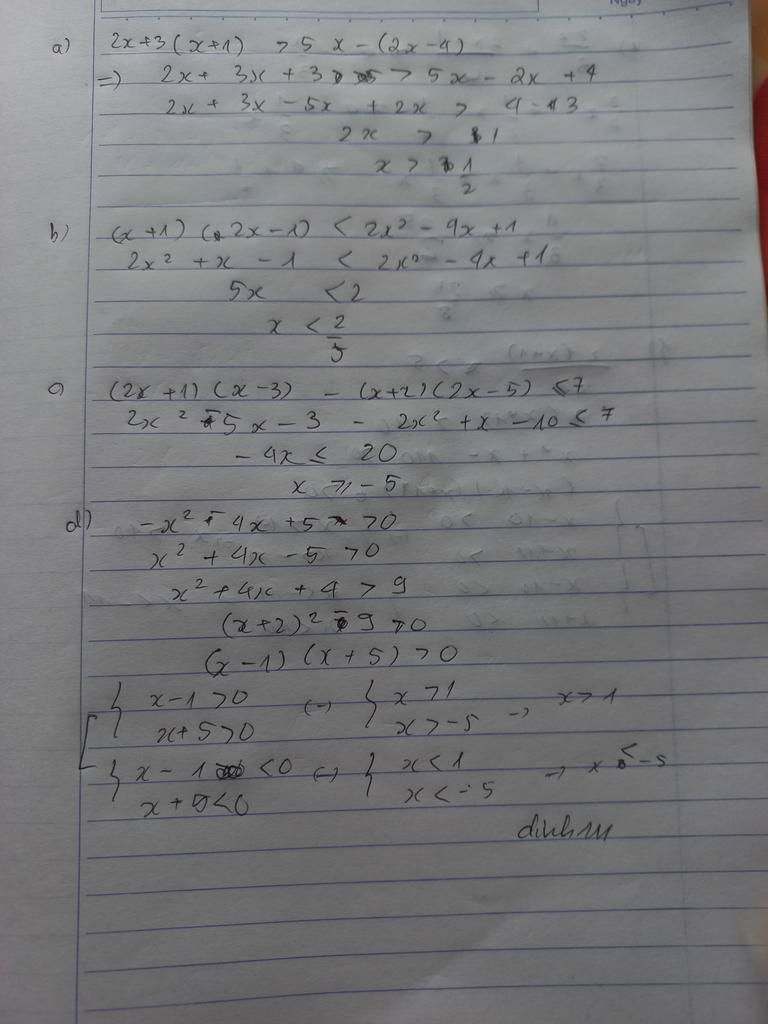 a) 2x+3(x+1) > 5x-(2x-4)
=> 2x+ 3x + 3 > 5x - 2x + 4
2x + 3x - 5x + 2x > 4 - 3
2x > 1
x > 1/2
b) (x+1)(2x-1) < 2x² - 4x+1
2x² + x - 1 < 2x² - 4x +1
5x < 2
x < 2/5
c) (2x+1)(x-3) - (x+2)(2x-5) ≤ 7
2x² - 5x - 3 - 2x² + x - 10 ≤ 7
- 4x ≤ 20
x ≥ - 5
d) -x² - 4x + 5 > 0
x² + 4x - 5 > 0
x² + 4x + 4 > 9
(x+2)² - 9 > 0
(x-1)(x+5) > 0
x-1 > 0 (-) x > 1
x+5 > 0 x > -5 -> x > 1
x - 1 < 0 (-) x < 1 -> x < -5
x + 5 < 0 x < -5